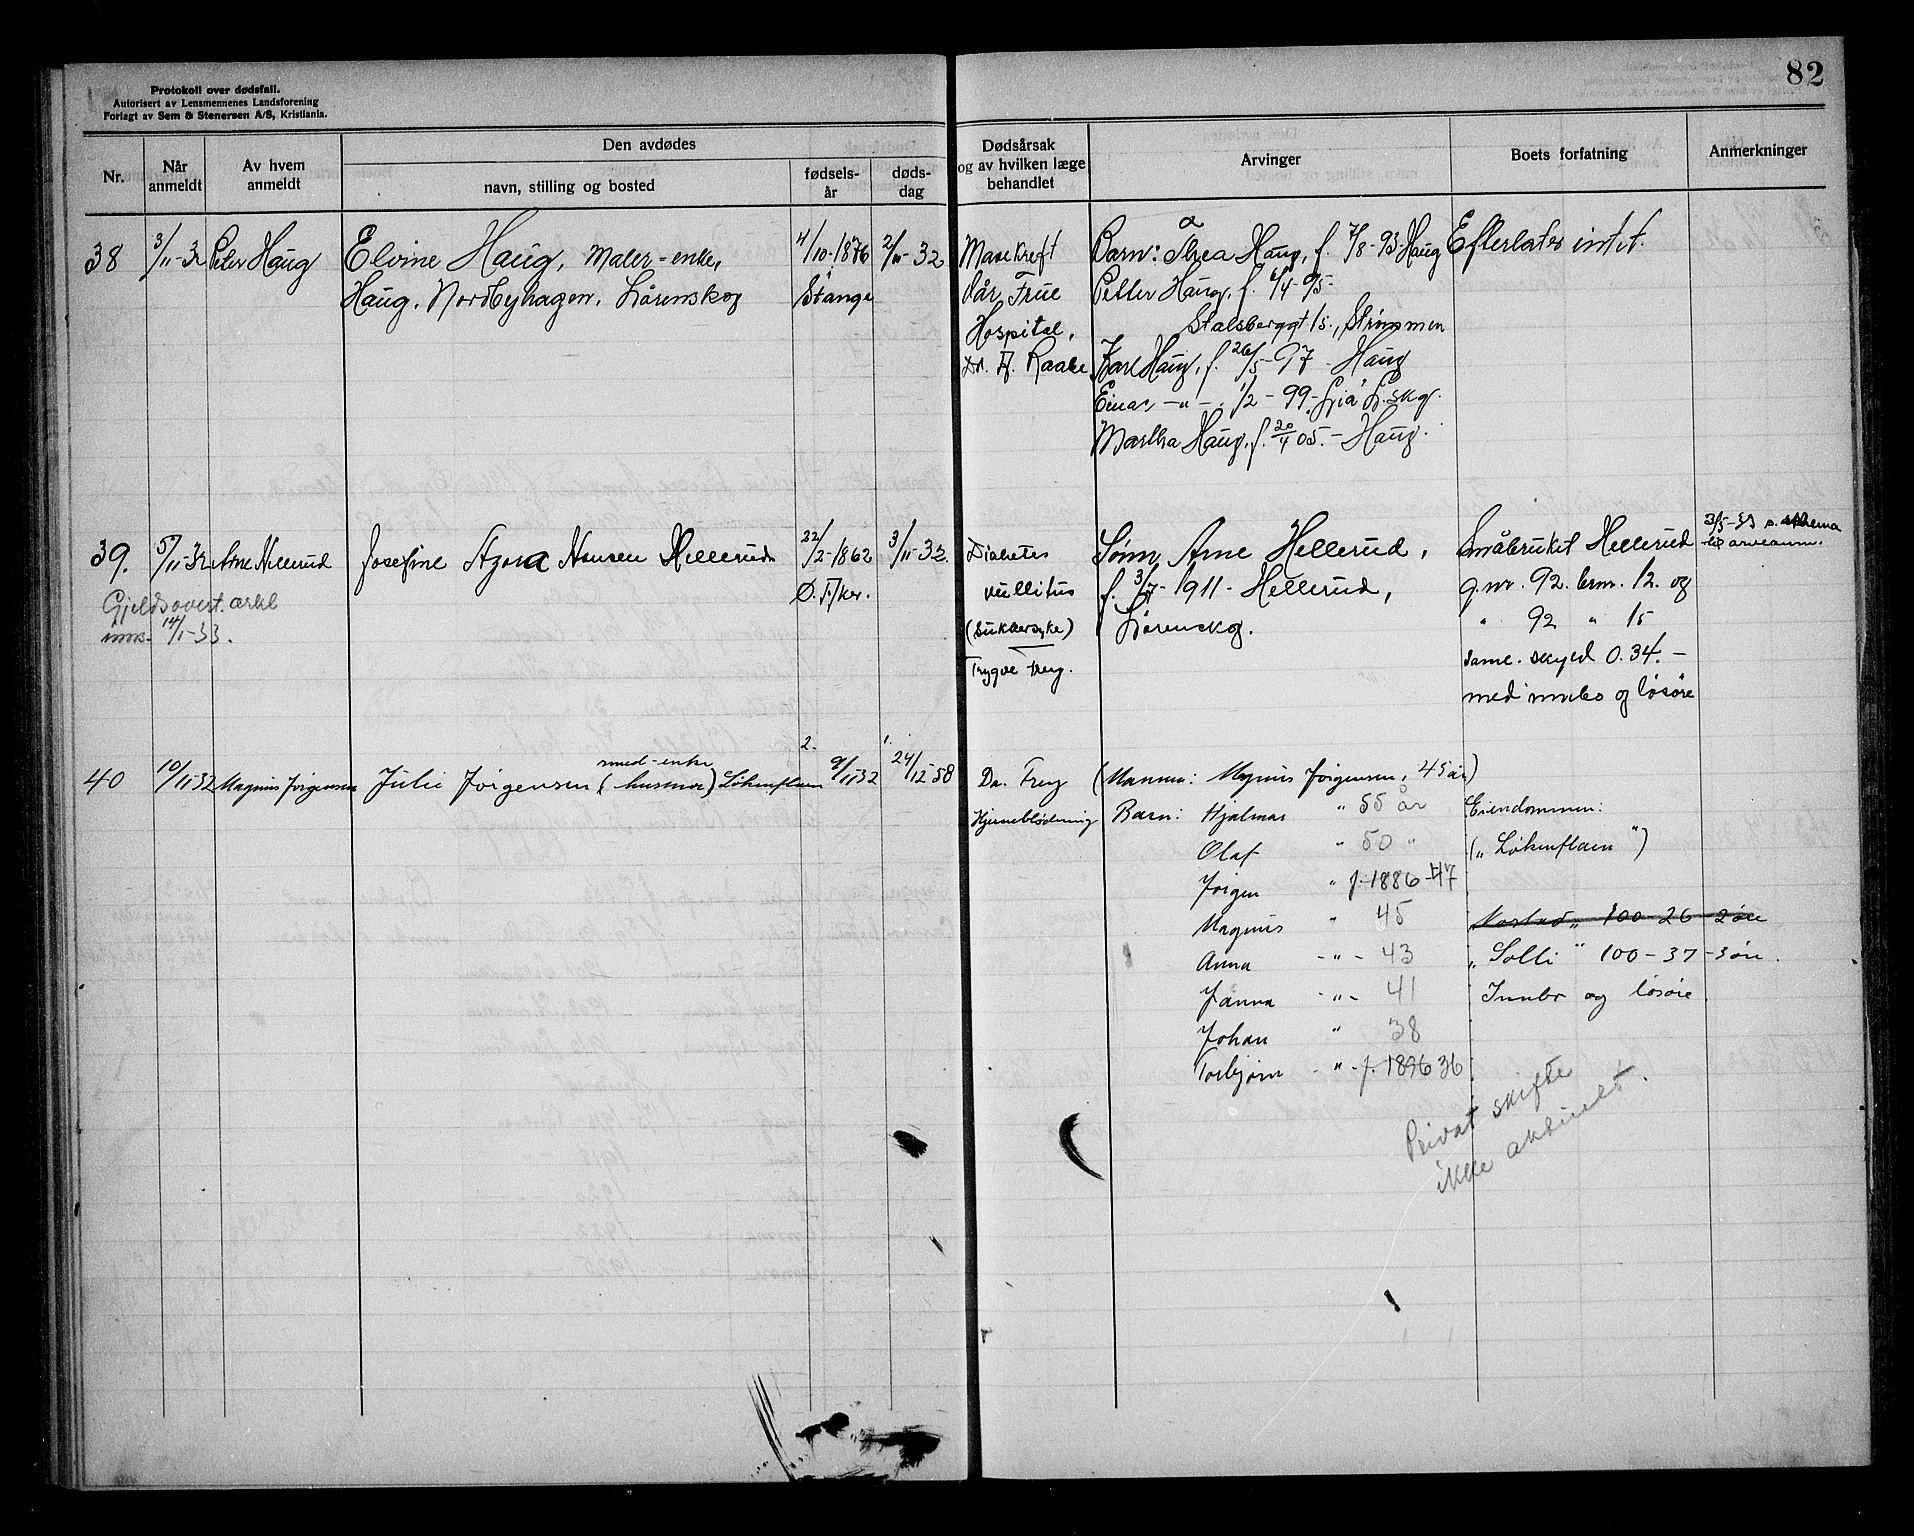 82
Protokoll over dødsfall.
Autorisert av Lensmennenes Landsforening
Forlagt av Sem & Stenersen A/S, Kristiania.
Nr.
Når anmeldt
Av hvem anmeldt
Den avdødes
navn, stilling og bosted
fødsels-år
døds-dag
Dødsårsak og av hvilken læge behandlet
Arvinger
Boets forfatning
Anmerkninger
38
3/11-32
Peter Haug
Elvine Haug, Maler-enke,
Haug, Nordbyhagen, Lørenskog
4/10-1876
Stange
2/11-32
Mavekreft
Vår Frue
Hospital,
Dr. F. Raabe
Barn: Thea Haug, f. 7/8-93-Haug
Petter Haug, f. 6/4-95-
Stalsberggt 15, Strømmen
Karl Haug, f. 26/5-97 - Haug
Einar -"-, 1/2-99- Lia L.skg.
Martha Haug, f. 20/4 05.- Haug.
Efterlater intet.
39.
5/11-32
Arne Hellerud
Gjeldsovert. erkl
inns. 14/1-33.
Josefine Agora Hansen Hellerud
22/2-1862
Ø. Tjker.
3/11-32.
Diabetes
mellitus
(Sukkersyke)
Trygve Freng.
Sønn Arne Hellerud,
f. 3/7-1911- Hellerud,
Lørenskog.
Småbruket Hellerud
g.nr. 92 brnr. 12. og
" 92 " 15
saml. skyld 0.34.-
med innbo og løsøre
3/5-33 s. skjema
til arveavm.
40
10/11-32
Magnus Jørgensen
smed-enke
Julie Jørgensen (husmor) Løkenflaen
2. 9/11-32
1. 24/12-58
Dr. Freng
Hjerneblødning
(Mannen: Magnus Jørgensen, 45 år)
Barn: Hjalmar " 55 år
Olaf " 50 "
Jørgen " f. 1886-47
Magnus " 45
Anna -"- 43
Janna -"- 41
Johan " 38
Torbjørn -"- f. 1896 36
Eiendommen:
("Løkenflaen")
100-26-2 øre
"Solli" 100-37-3 øre.
Innbo og løsøre
Privat skifte
ikke anvendt.